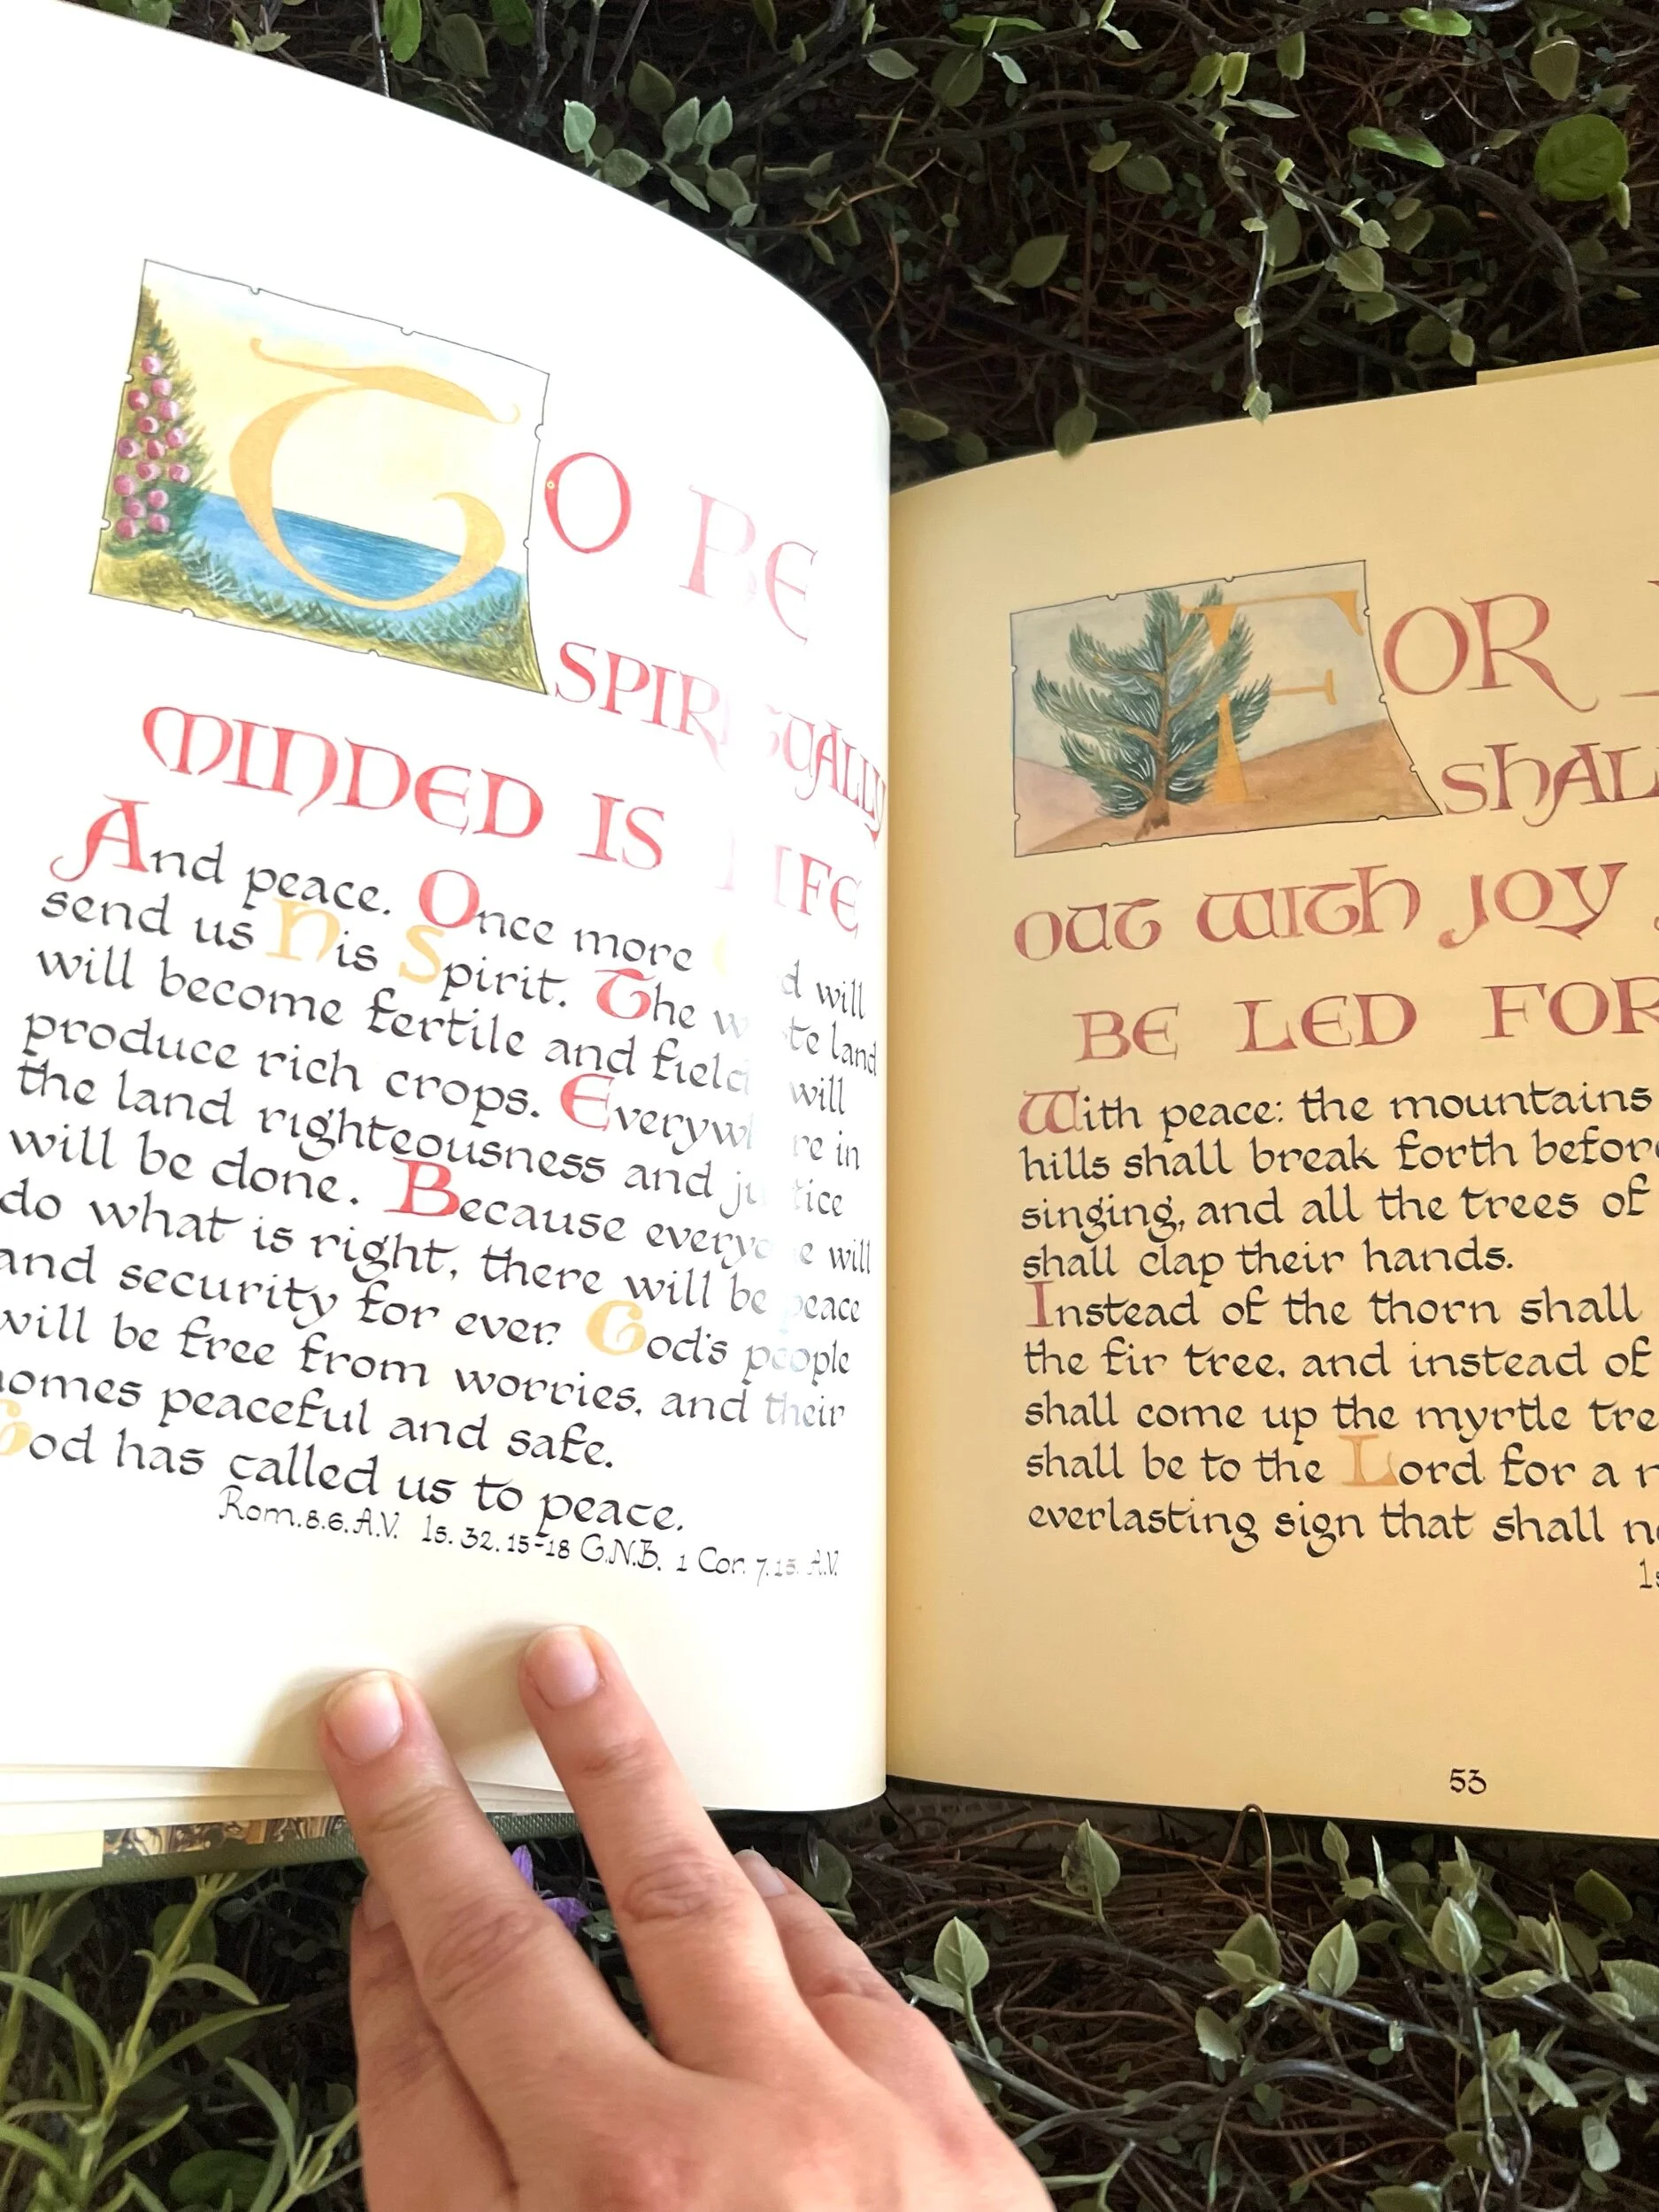 TO BE
SPIRITUALLY
MINDED IS LIFE
And peace. Once more God will
send us His Spirit. The waste land
will become fertile and fields will
produce rich crops. Everywhere in
the land righteousness and justice
will be done. Because everyone will
do what is right, there will be peace
and security for ever. God's people
will be free from worries, and their
homes peaceful and safe.
God has called us to peace.
Rom.8.6.A.V. Is. 32. 15-18 G.N.B. 1 Cor. 7.15. A.V.
FOR
SHALL
OUT WITH JOY
BE LED FOR
With peace: the mountains
hills shall break forth before
singing, and all the trees of
shall clap their hands.
Instead of the thorn shall
the fir tree, and instead of
shall come up the myrtle tre
shall be to the Lord for a
everlasting sign that shall
53